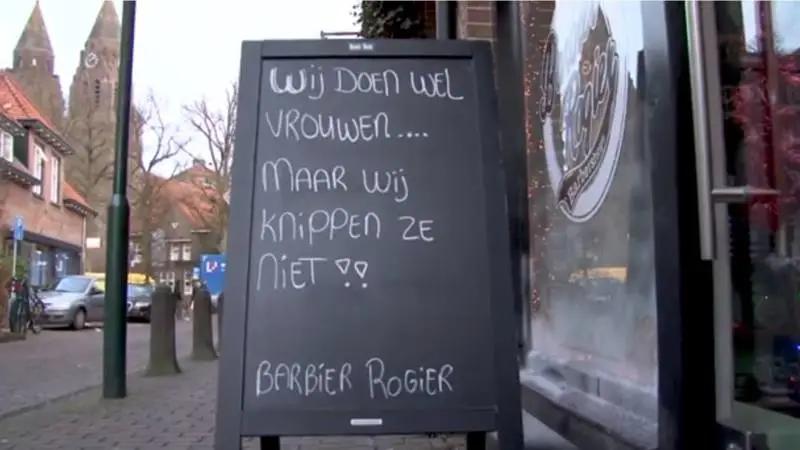 Wij DOEN WEL
VROUWEN....
MAAR Wij
KNiPPEN ZE
NiET!!
BARBiER ROGiER
Rogier